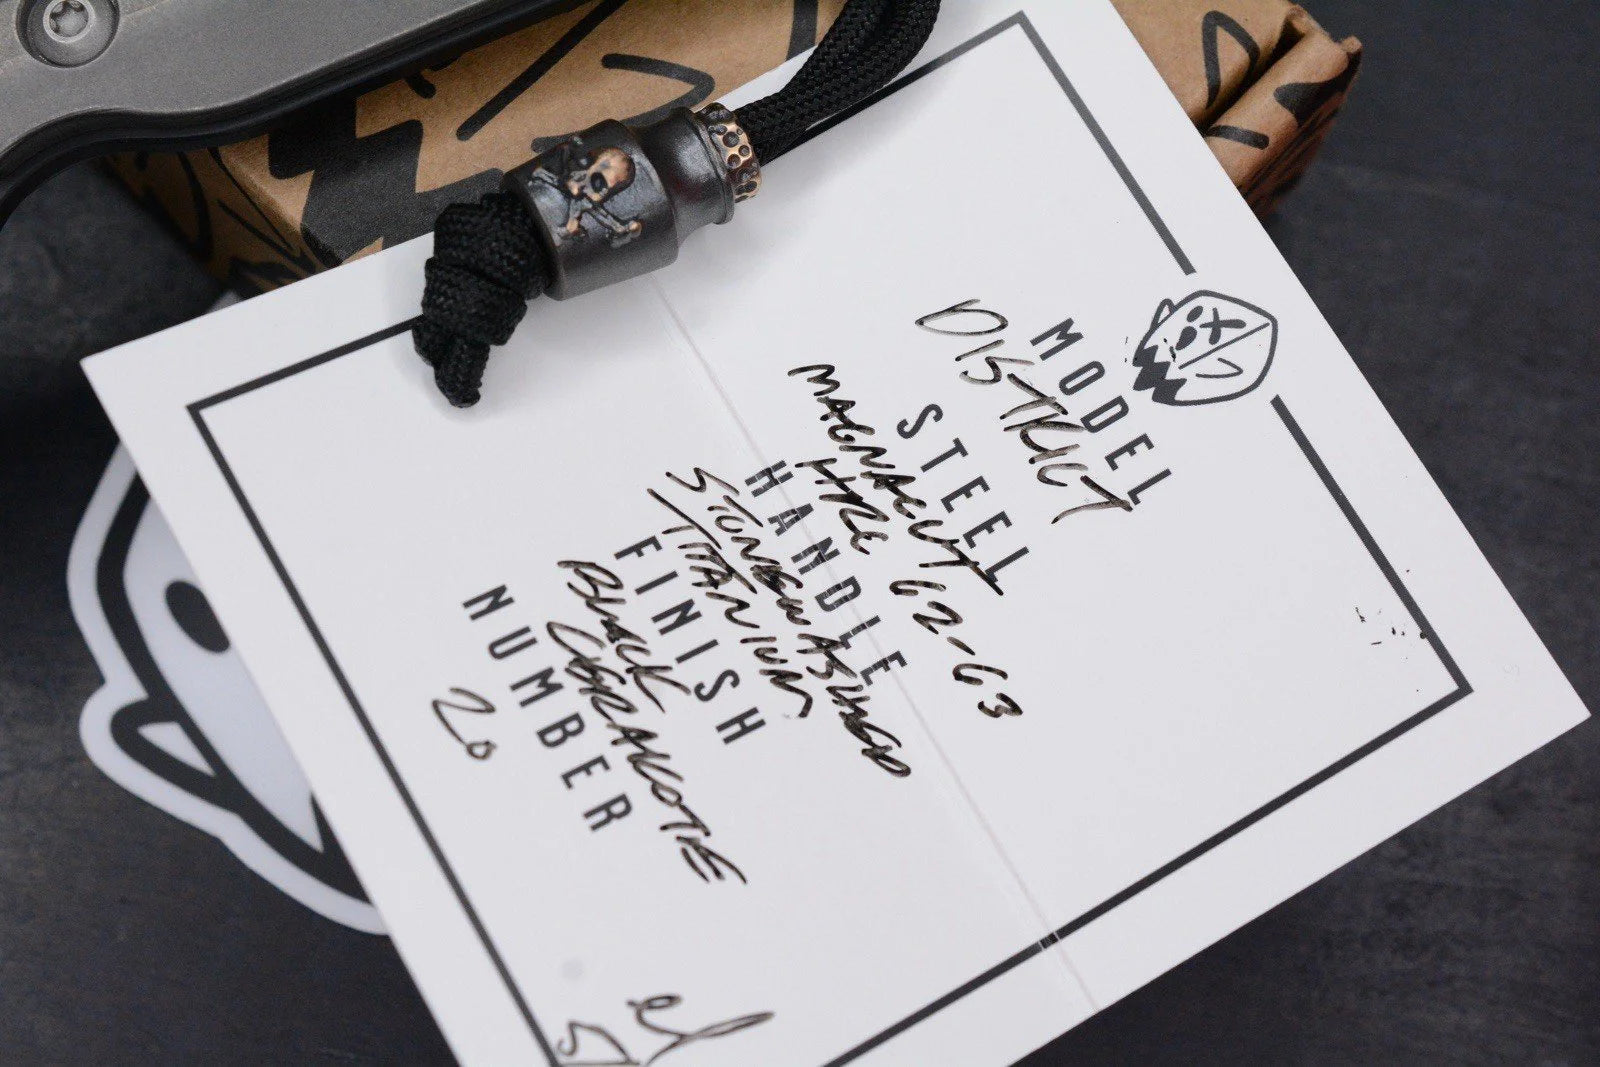 MODEL
DISTRICT
STEEL
MAGNACUT
HRC 62-63
HANDLE
STONEWASHED
TITANIUM
FINISH
BLACK
CERAKOTE
NUMBER
20